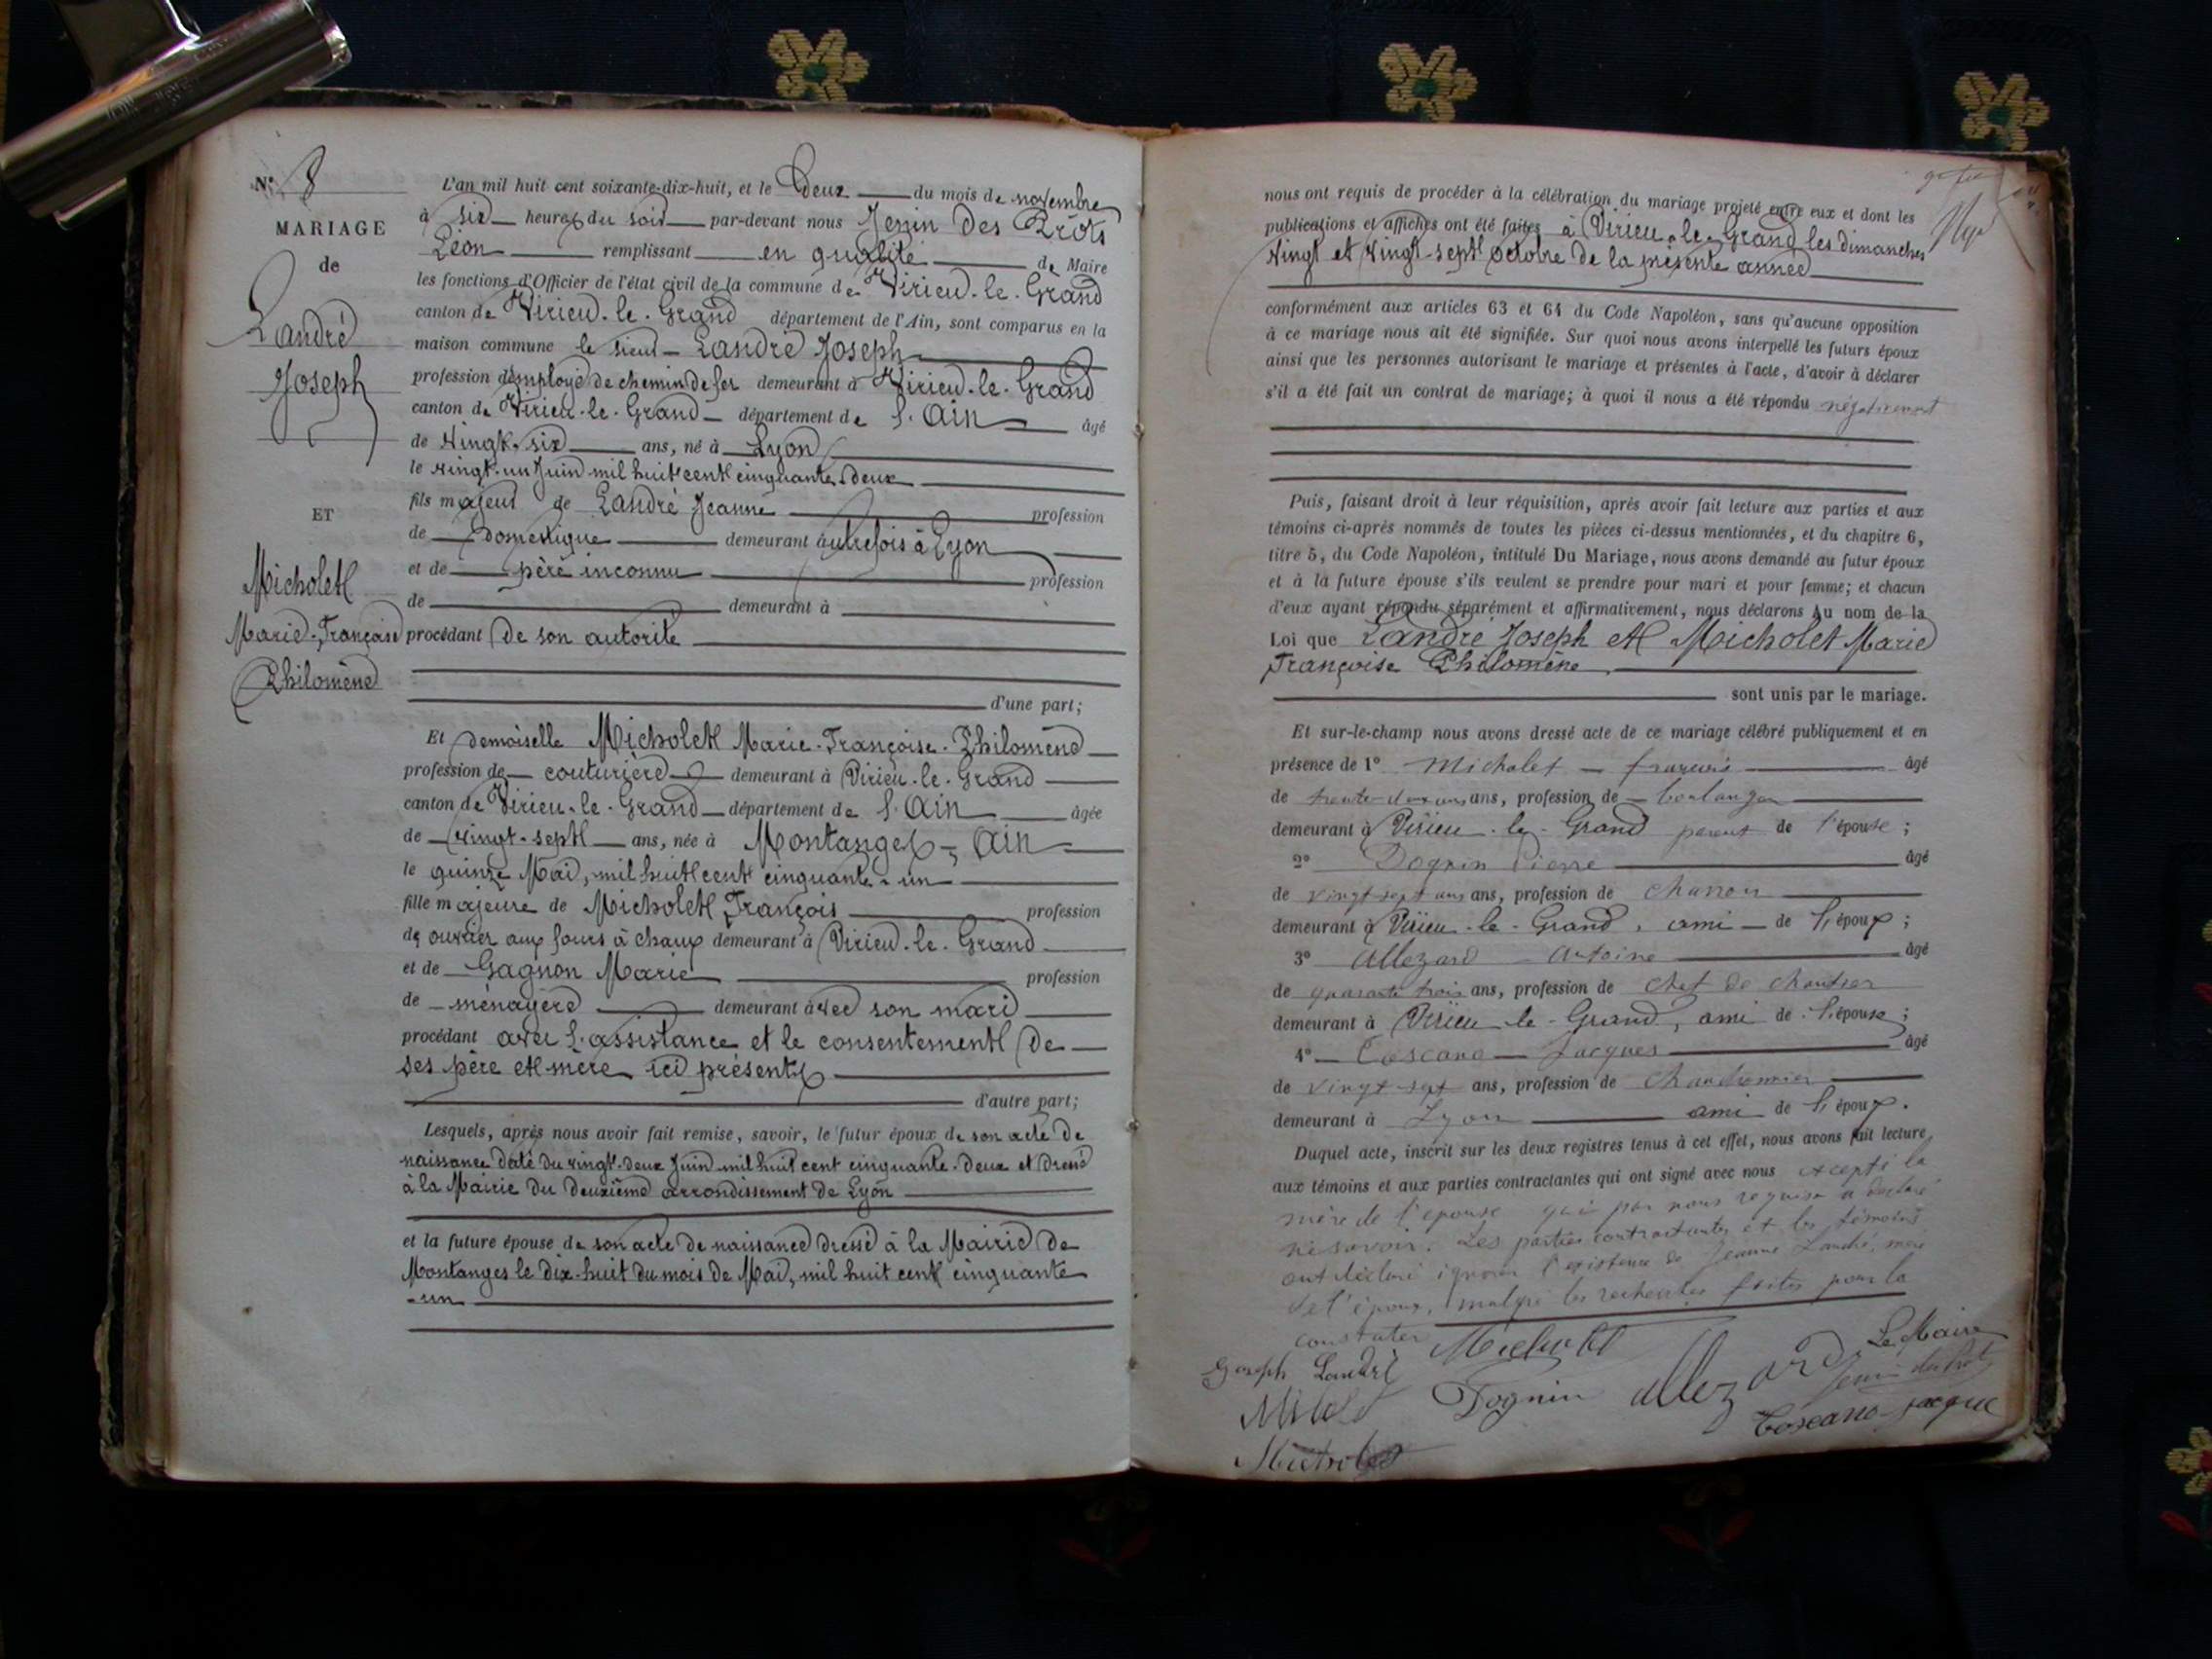 N° 8
MARIAGE
de
Landré
Joseph
ET
Micholet
Marie-Françoise
Philomène
L'an mil huit cent soixante-dix-huit, et le Deux du mois de novembre
à six heures du soir par-devant nous Jenin Des Prôts
Léon remplissant en qualité de Maire
les fonctions d'Officier de l'état civil de la commune de Virieu-le-Grand
canton de Virieu-le-Grand département de l'Ain, sont comparus en la
maison commune le sieur Landré Joseph
profession d'employé de chemin de fer demeurant à Virieu-le-Grand
canton de Virieu-le-Grand département de l'Ain âgé
de vingt-six ans, né à Lyon
le vingt-un Juin mil huit cent cinquante-deux
fils majeur de Landré Jeanne profession
de domestique demeurant autrefois à Lyon
et de père inconnu profession
de demeurant à
procédant de son autorité
d'une part;
Et demoiselle Micholet Marie-Françoise-Philomène
profession de couturière demeurant à Virieu-le-Grand
canton de Virieu-le-Grand département de l'Ain âgée
de vingt-sept ans, née à Montanges, Ain
le quinze Mai, mil huit cent cinquante-un
fille majeure de Micholet François profession
de ouvrier aux fours à chaux demeurant à Virieu-le-Grand
et de Gagnon Marie profession
de ménagère demeurant avec son mari
procédant avec l'assistance et le consentement de
ses père et mère ici présents
d'autre part;
Lesquels, après nous avoir fait remise, savoir, le futur époux de son acte de
naissance daté du vingt-deux Juin mil huit cent cinquante-deux et dressé
à la Mairie du deuxième arrondissement de Lyon
et la future épouse de son acte de naissance dressé à la Mairie de
Montanges le dix-huit du mois de Mai, mil huit cent cinquante
-un
nous ont requis de procéder à la célébration du mariage projeté entre eux et dont les
publications et affiches ont été faites à Virieu-le-Grand les dimanches
vingt et vingt-sept octobre de la présente année
conformément aux articles 63 et 64 du Code Napoléon, sans qu'aucune opposition
à ce mariage nous ait été signifiée. Sur quoi nous avons interpellé les futurs époux
ainsi que les personnes autorisant le mariage et présentes à l'acte, d'avoir à déclarer
s'il a été fait un contrat de mariage; à quoi il nous a été répondu négativement
Puis, faisant droit à leur réquisition, après avoir fait lecture aux parties et aux
témoins ci-après nommés de toutes les pièces ci-dessus mentionnées, et du chapitre 6,
titre 5, du Code Napoléon, intitulé Du Mariage, nous avons demandé au futur époux
et à la future épouse s'ils veulent se prendre pour mari et pour femme; et chacun
d'eux ayant répondu séparément et affirmativement, nous déclarons Au nom de la
Loi que Landré Joseph et Micholet Marie
Françoise Philomène
sont unis par le mariage.
Et sur-le-champ nous avons dressé acte de ce mariage célébré publiquement et en
présence de 1° Micholet françois âgé
de trente-deux ans ans, profession de boulanger
demeurant à Virieu-le-Grand parent de l'épouse;
2° Dognin Pierre âgé
de vingt-sept ans ans, profession de charron
demeurant à Virieu-le-Grand, ami de l'époux;
3° Allezard Antoine âgé
de quarante trois ans, profession de chef de chantier
demeurant à Virieu-le-Grand, ami de l'épouse;
4° Coscano Jacques âgé
de vingt-sept ans, profession de
demeurant à Lyon ami de l'époux.
Duquel acte, inscrit sur les deux registres tenus à cet effet, nous avons fait lecture
aux témoins et aux parties contractantes qui ont signé avec nous excepté la
mère de l'épouse qui par nous requise a déclaré
ne savoir. Les parties contractantes et les témoins
ont déclaré ignorer l'existence de Jeanne Landré, mère
de l'époux, malgré les recherches faites pour la
constater
Micholet
Le Maire
Joseph Landré
Dognin
allezard
Jenin des Prots
Coscano jacque
Micholet